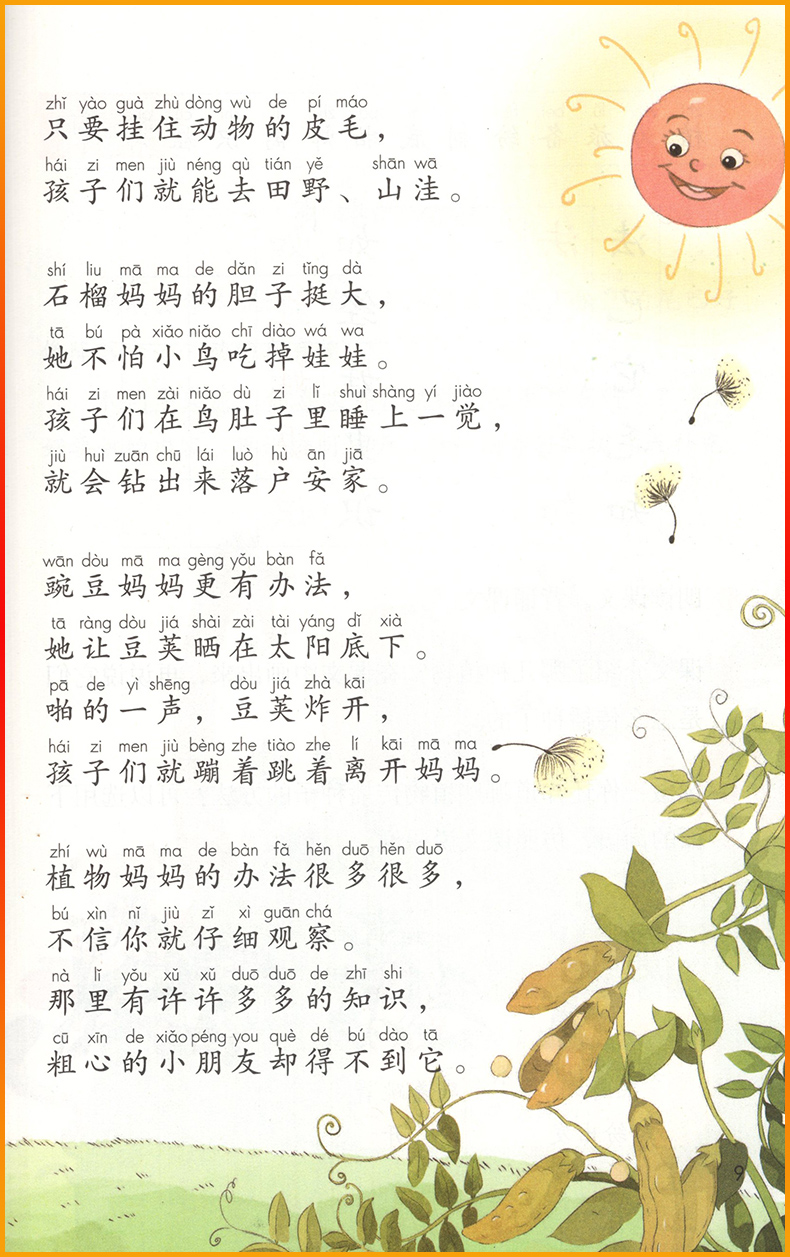 zhǐ yào guà zhù dòng wù de pí máo
只要挂住动物的皮毛，
hái zi men jiù néng qù tián yě shān wā
孩子们就能去田野、山洼。
shí liu mā ma de dǎn zi tǐng dà
石榴妈妈的胆子挺大，
tā bú pà xiǎo niǎo chī diào wá wa
她不怕小鸟吃掉娃娃。
hái zi men zài niǎo dù zi lǐ shuì shàng yí jiào
孩子们在鸟肚子里睡上一觉，
jiù huì zuān chū lái luò hù ān jiā
就会钻出来落户安家。
wān dòu mā ma gèng yǒu bàn fǎ
豌豆妈妈更有办法，
tā ràng dòu jiá shài zài tài yáng dǐ xià
她让豆荚晒在太阳底下。
pā de yì shēng dòu jiá zhà kāi
啪的一声，豆荚炸开，
hái zi men jiù bèng zhe tiào zhe lí kāi mā ma
孩子们就蹦着跳着离开妈妈。
zhí wù mā ma de bàn fǎ hěn duō hěn duō
植物妈妈的办法很多很多，
bú xìn nǐ jiù zǐ xì guān chá
不信你就仔细观察。
nà lǐ yǒu xǔ xǔ duō duō de zhī shi
那里有许许多多的知识，
cū xīn de xiǎo péng you què dé bú dào tā
粗心的小朋友却得不到它。
9